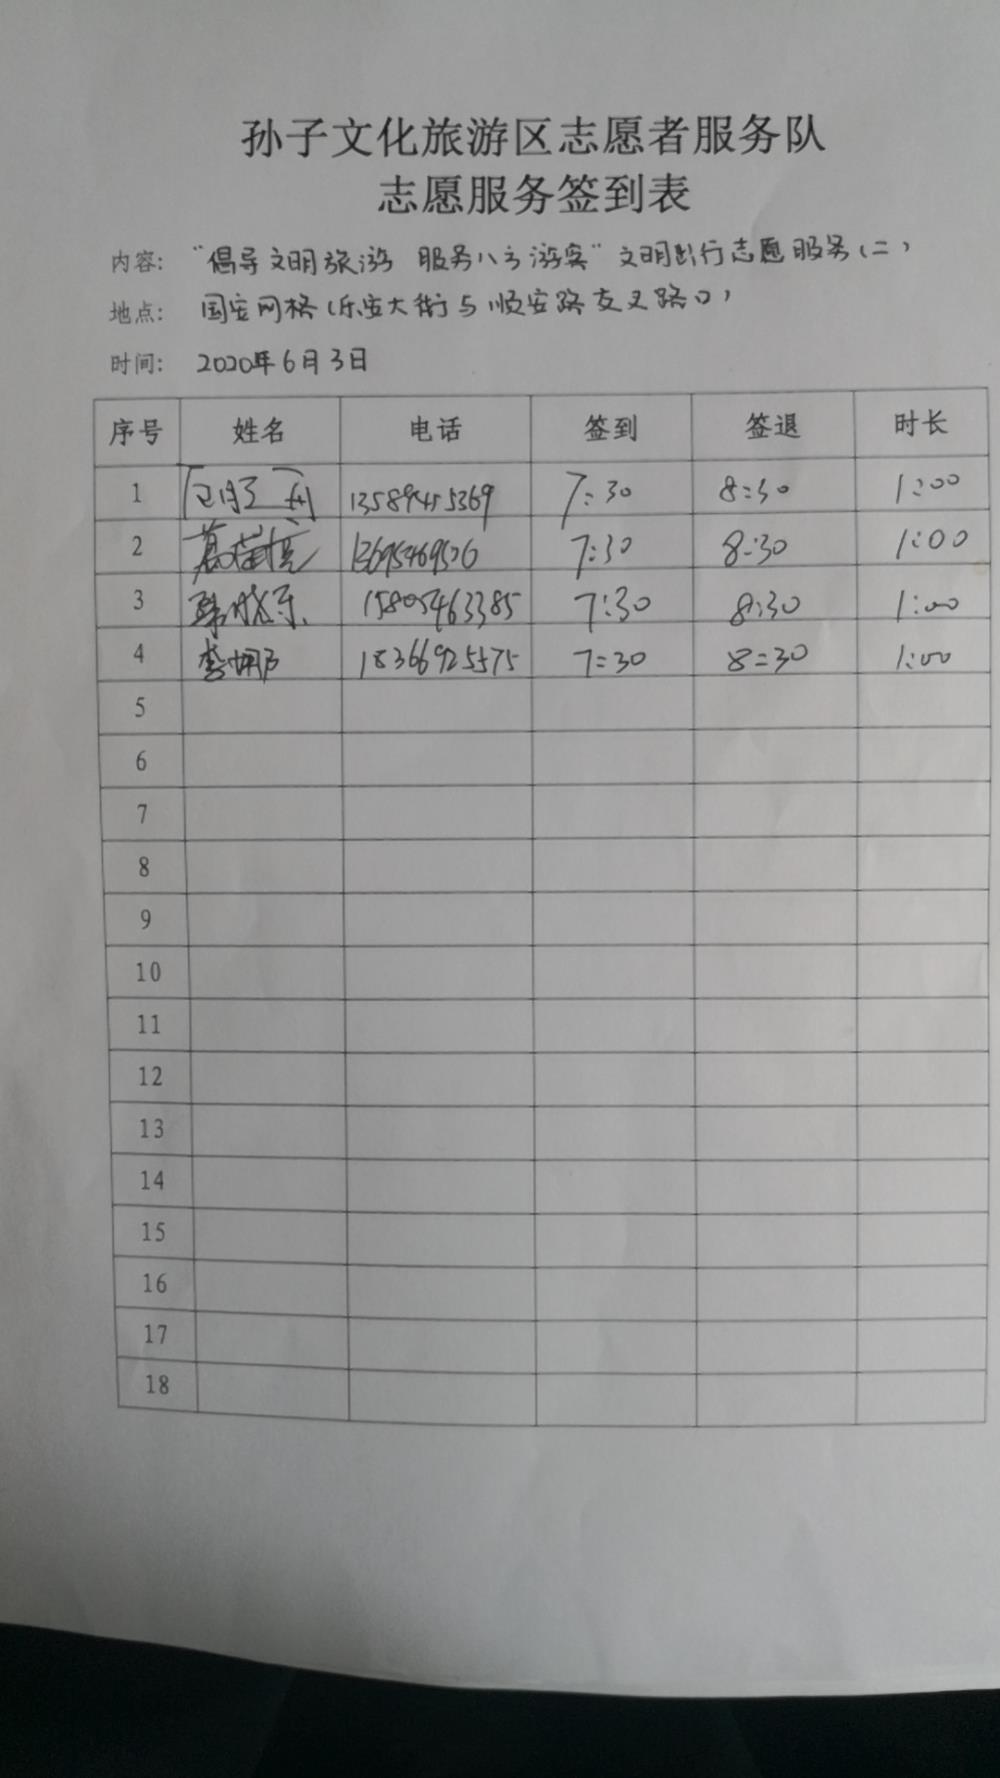 孙子文化旅游区志愿者服务队
志愿服务签到表
内容: “倡导文明旅游 服务八方游客”文明出行志愿服务(二)
地点: 国安网格(乐安大街与顺安路交叉路口)
时间: 2020年6月3日
序号 姓名 电话 签到 签退 时长
1 13589455369 7:30 8:30 1:00
2 13695469526 7:30 8:30 1:00
3 韩晓东 15805463385 7:30 8:30 1:00
4 李娜 18366925575 7:30 8:30 1:00
5
6
7
8
9
10
11
12
13
14
15
16
17
18